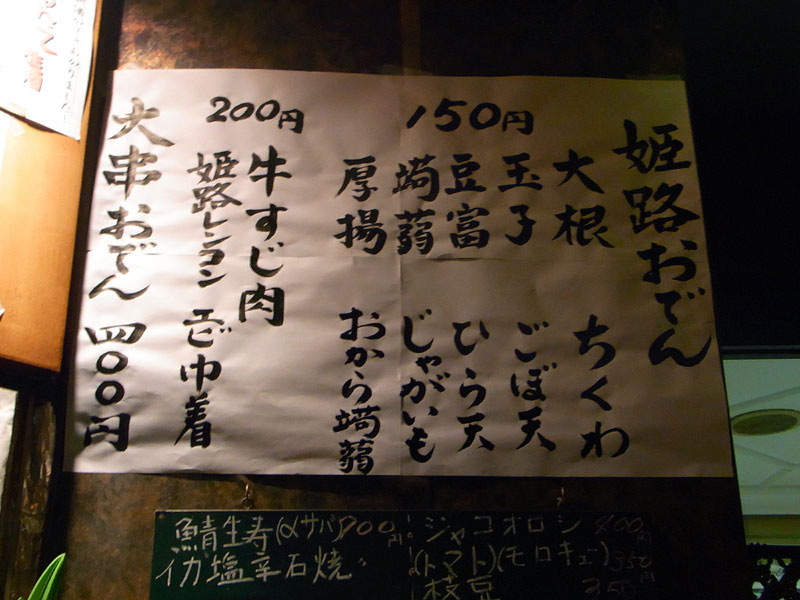 姫路おでん
150円
大根 ちくわ
玉子 ごぼ天
豆富 ひら天
蒟蒻 じゃがいも
厚揚 おから蒟蒻
200円
牛すじ肉
姫路レンコン エビ巾着
大串おでん 四〇〇円
鯖生寿(〆サバ)
イカ塩辛石焼〃
ジャコオロシ 400円
(トマト)(モロキュー)350円
枝豆 350